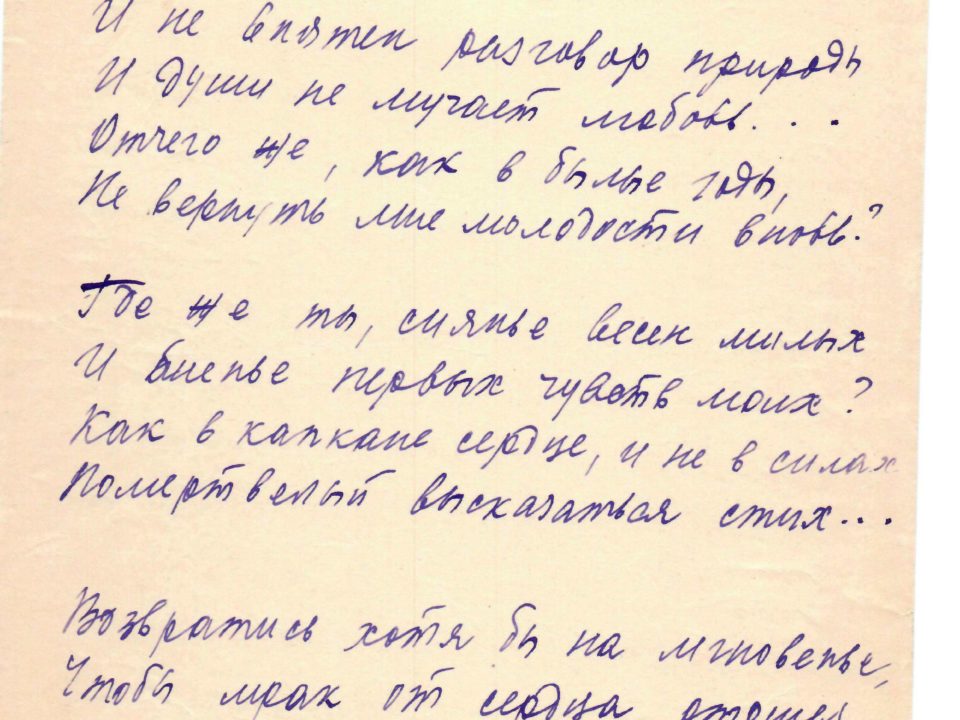 И не внятен разговор природы
И души не мучает любовь...
Отчего же, как в былые годы,
Не вернуть мне молодости вновь?
Где же ты, сиянье весен милых
И биенье первых чувств моих?
Как в капкане сердце, и не в силах
Помертвелый высказаться стих...
Возвратись хотя бы на мгновенье,
Чтобы мрак от сердца отошел